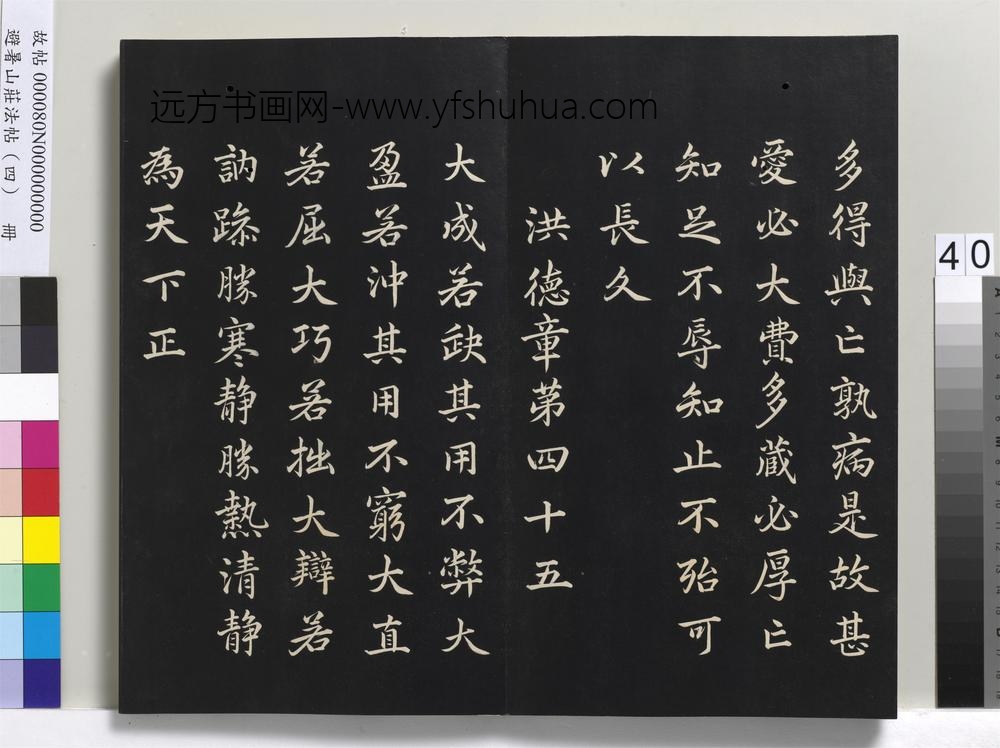 多得與亡孰病是故甚
愛必大費多藏必厚亡
知足不辱知止不殆可
以長久
洪德章第四十五
大成若缺其用不弊大
盈若沖其用不窮大直
若屈大巧若拙大辯若
訥躁勝寒靜勝熱清靜
為天下正
远方书画网-www.yfshuhua.com
故帖 000080N000000000
避暑山莊法帖(四) 冊
40